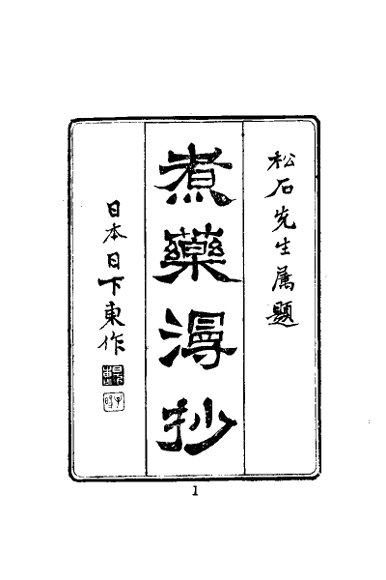 松石先生属題
煮藥漫抄
日本日下東作
1